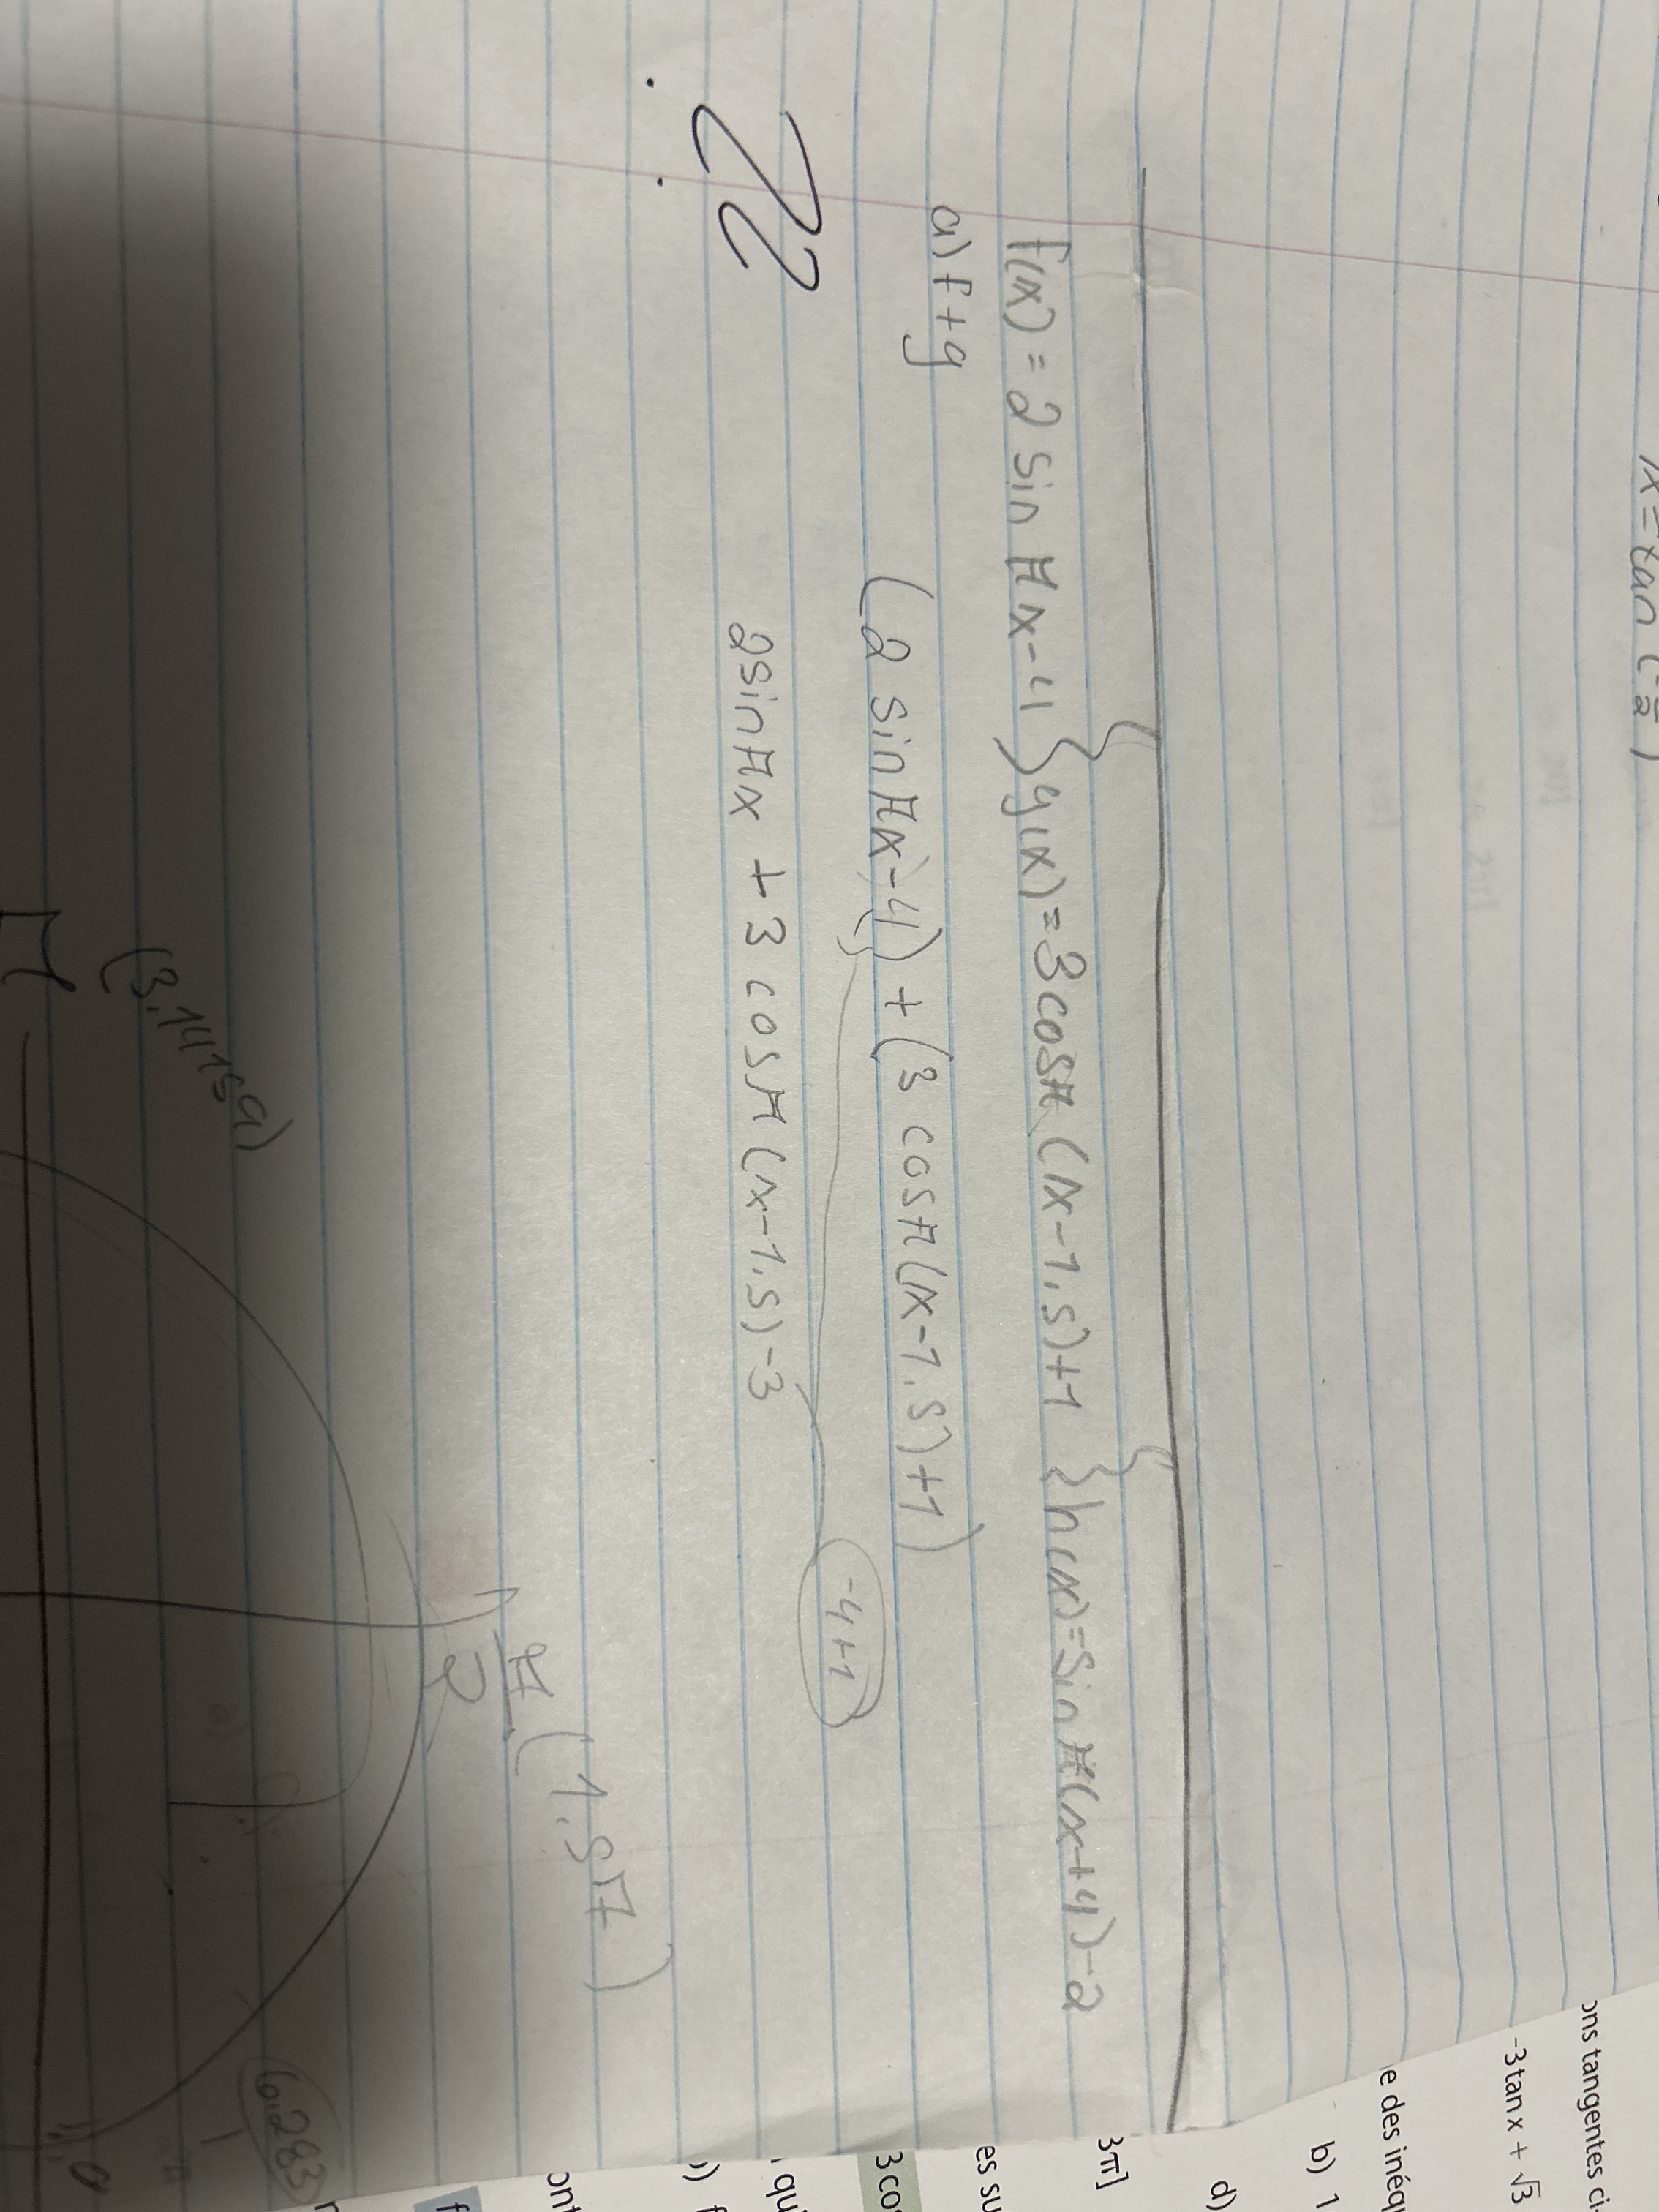 x = tan (
f(x) = 2 sin πx - 4 } g(x) = 3 cos π (x - 1,5) + 1 } h(x) = sin π(x + 4) - 2
a) f + g
(2 sin πx - 4) + (3 cos π(x - 1,5) + 1)
-4+1
2 sin πx + 3 cos π (x - 1,5) - 3
π/2 (1,57)
(3,14159)
π
6,283
1,0
ons tangentes ci
-3 tan x + √3
e des inéq
b) 1
d)
3π]
es su
3 co
qu
ont
f